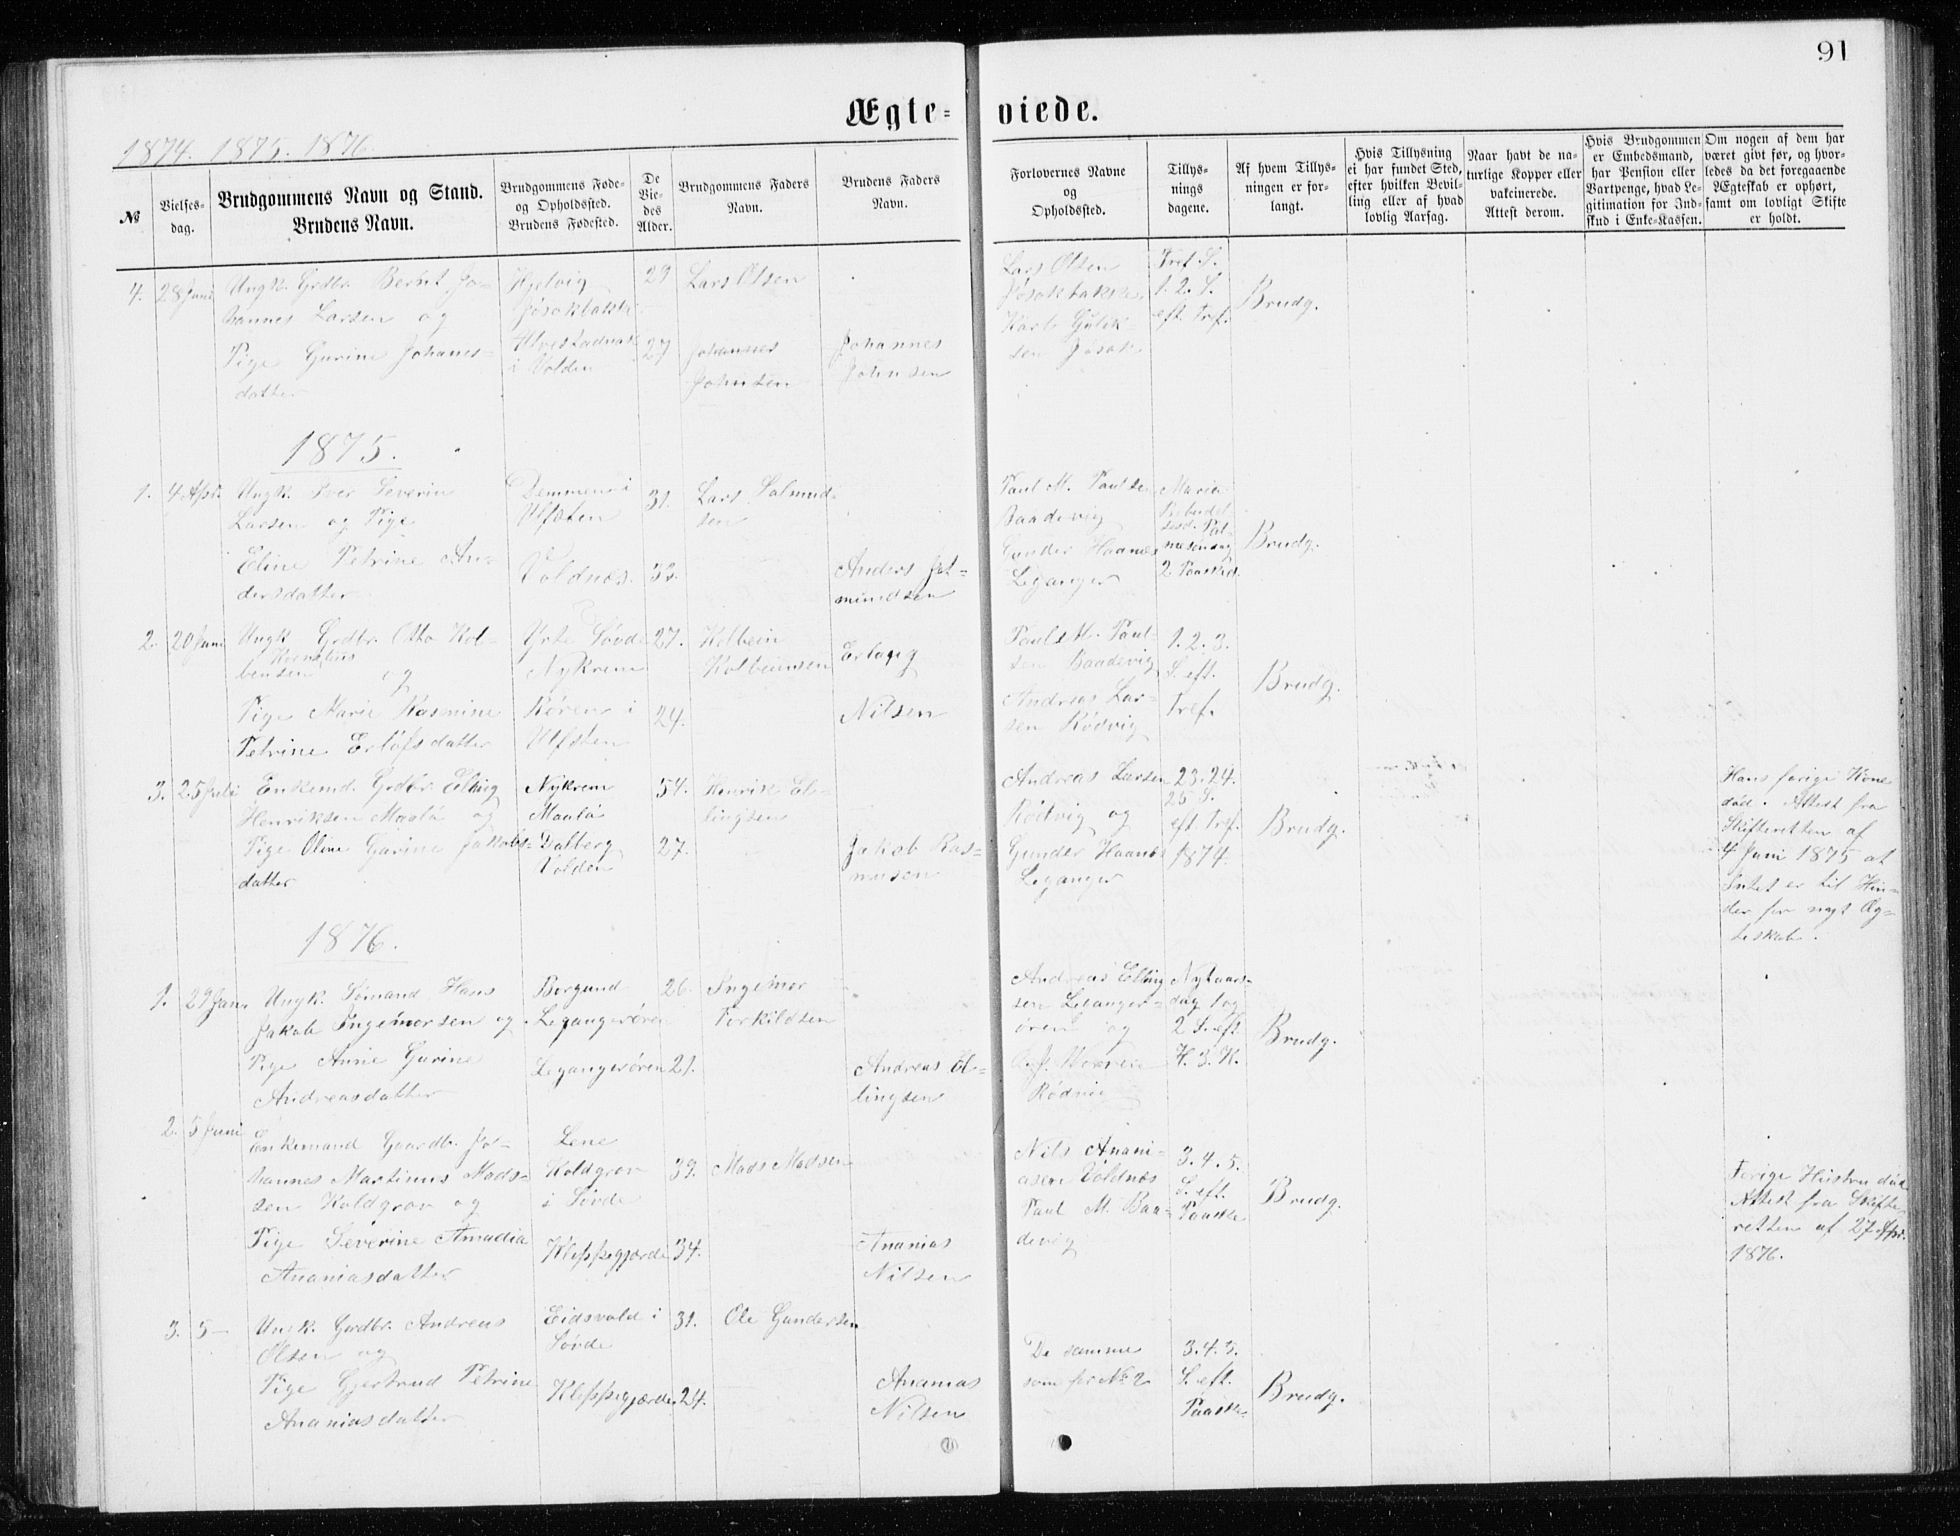 91
Ægte-
viede.
1874. 1875. 1876.
№
Vielses-
dag.
Brudgommens Navn og Stand.
Brudens Navn.
Brudgommens Føde-
og Opholdssted.
Brudens Fødested.
De
Vie-
des
Alder.
Brudgommens Faders
Navn.
Brudens Faders
Navn.
Forlovernes Navne
og
Opholdssted.
Tillys-
nings
dagene.
Af hvem Tillys-
ningen er for-
langt.
Hvis Tillysning
ei har fundet Sted,
efter hvilken Bevil-
ling eller af hvad
lovlig Aarsag.
Naar havt de na-
turlige Kopper eller
vakcinerede.
Attest derom.
Hvis Brudgommen
er Embedsmand,
har Pension eller
Vartpenge, hvad Le-
gitimation for Ind-
skud i Enke-Kassen.
Om nogen af dem har
været givt før, og hvor-
ledes da det foregaaende
Ægteskab er ophørt,
samt om lovligt Skifte
er holdt.
4. 28 Juni
Ungk. Grdbr. Bernt Jo-
hannes Larsen og
Pige Gurine Johanes-
datter
Hjelvig
Jøsokbakke
i Volden
29
27
Lars Olsen
Johannes
Johnsen
Johannes
Johnsen
Lars Olsen
Jøsokbakke
Karl Gulik-
sen Jøsok
Tref. S.
1. 2. S.
eft. Tref.
Brudg.
1875.
1. 4 Apr.
Ungk. Iver Severin
Larsen og Pige
Eline Petrine An-
dersdatter
Demmen i
Ulfsten
Voldnæs.
31.
32.
Lars Salmund-
sen
Anders Jet-
mundsen
Paul M. Paulsen
Baadevig
Gunder Haanes
Leganger
Maria
Bebudel-
sesd. Pal-
mesøndag
2 Paaskd.
Brudg.
2. 20 Juni
Ungk. Grdbr. Otto Kol-
Kornelius
bensen og
Pige Marie Rasmine
Petrine Erlofsdatter
Yrte Søvde
Nykrem
Røren i
Ulfsten
27.
24.
Kolbein
Kolbeinsen
Nilsen
Paul M. Paul-
sen Baadevig
Andreas Lar-
sen Rødvig
1. 2. 3.
S. eft.
Tref.
Brudg.
3. 25 Juli
Enkemd. Grdbr. Elling
Henriksen Maalø og
Pige Oline Garine Jakobs-
datter
Nykrem
Maalø
Dalberg
Volden
54.
27.
Henrik El-
lingsen
Jakob Ras-
musen
Andreas Larsen
Rødvig og
Gunder Haanes
Leganger
23. 24.
25 S.
eft. Tref.
1874.
Brudg.
Hans forige Kone
død. Attest fra
Skifteretten af
4 Juni 1875 at
Intet er til Hin-
der for nyt Æg-
teskab.
1876.
1. 29 Jan.
Ungk. Sømand Hans
Jakob Ingemorsen og
Pige Anne Gurine
Andreasdatter
Borgund
Legangerøren
Legangerøren
26.
21.
Ingemor
Torkildsen
Andreas El-
lingsen
Andreas Elling-
sen Leganger-
øren og
Rødvig
Nytaars-
dag 1 og
2 S. eft.
H. 3. K.
Brudg.
2. 5 Juni
Enkemand Gaardbr. Jo-
hannes Martinus Mads-
sen Koldgrov og
Pige Severine Amadia
Ananiasdatter
Lene
Koldgrov
i Søvde
Kleppegjærde
39.
34.
Mads Madsen
Ananias
Nilsen
Nils Anani-
asen Voldnæs
Paul M. Baa-
devig
3. 4. 5.
S. eft.
Paaske
Brudg.
Forige Hustru død
Attest fra Skifte-
retten af 27 Apr.
1876.
3. 5 —
Ungk. Gardbr. Andreas
Olsen og
Pige Gjertrud Petrine
Ananiasdatter
Eidsvold i
Søvde
Kleppegjærde
31.
24.
Ole Gundersen
Ananias
Nilsen
De samme
som for № 2
3. 4. 5.
S. eft.
Paaske.
Brudg.